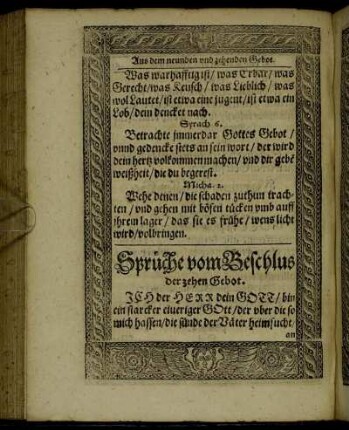 Aus dem neunden vnd zehenden Gebot.
Was warhafftig ist / was Erbar / was
Gerecht / was Keusch / was Lieblich / was
wol Lautet / ist etwa eine tugent / ist etwa ein
Lob / dem dencket nach.
Syrach 6.
Betrachte jmmerdar Gottes Gebot /
vnnd gedencke stets an sein wort / der wird
dein hertz volkommen machen / vnd dir gebē
weißheit / die du begerest.
Micha. 2.
Wehe denen / die schaden zuthun trach-
ten / vnd gehen mit bösen tücken vmb auff
jhrem lager / das sie es frühe / wens licht
wird / volbringen.
Sprüche vom Beschlus
der zehen Gebot.
ICH der HERR dein GOTT / bin
ein starcker eiueriger GOtt / der vber die so
mich hassen / die sünde der Väter heimsucht /
an